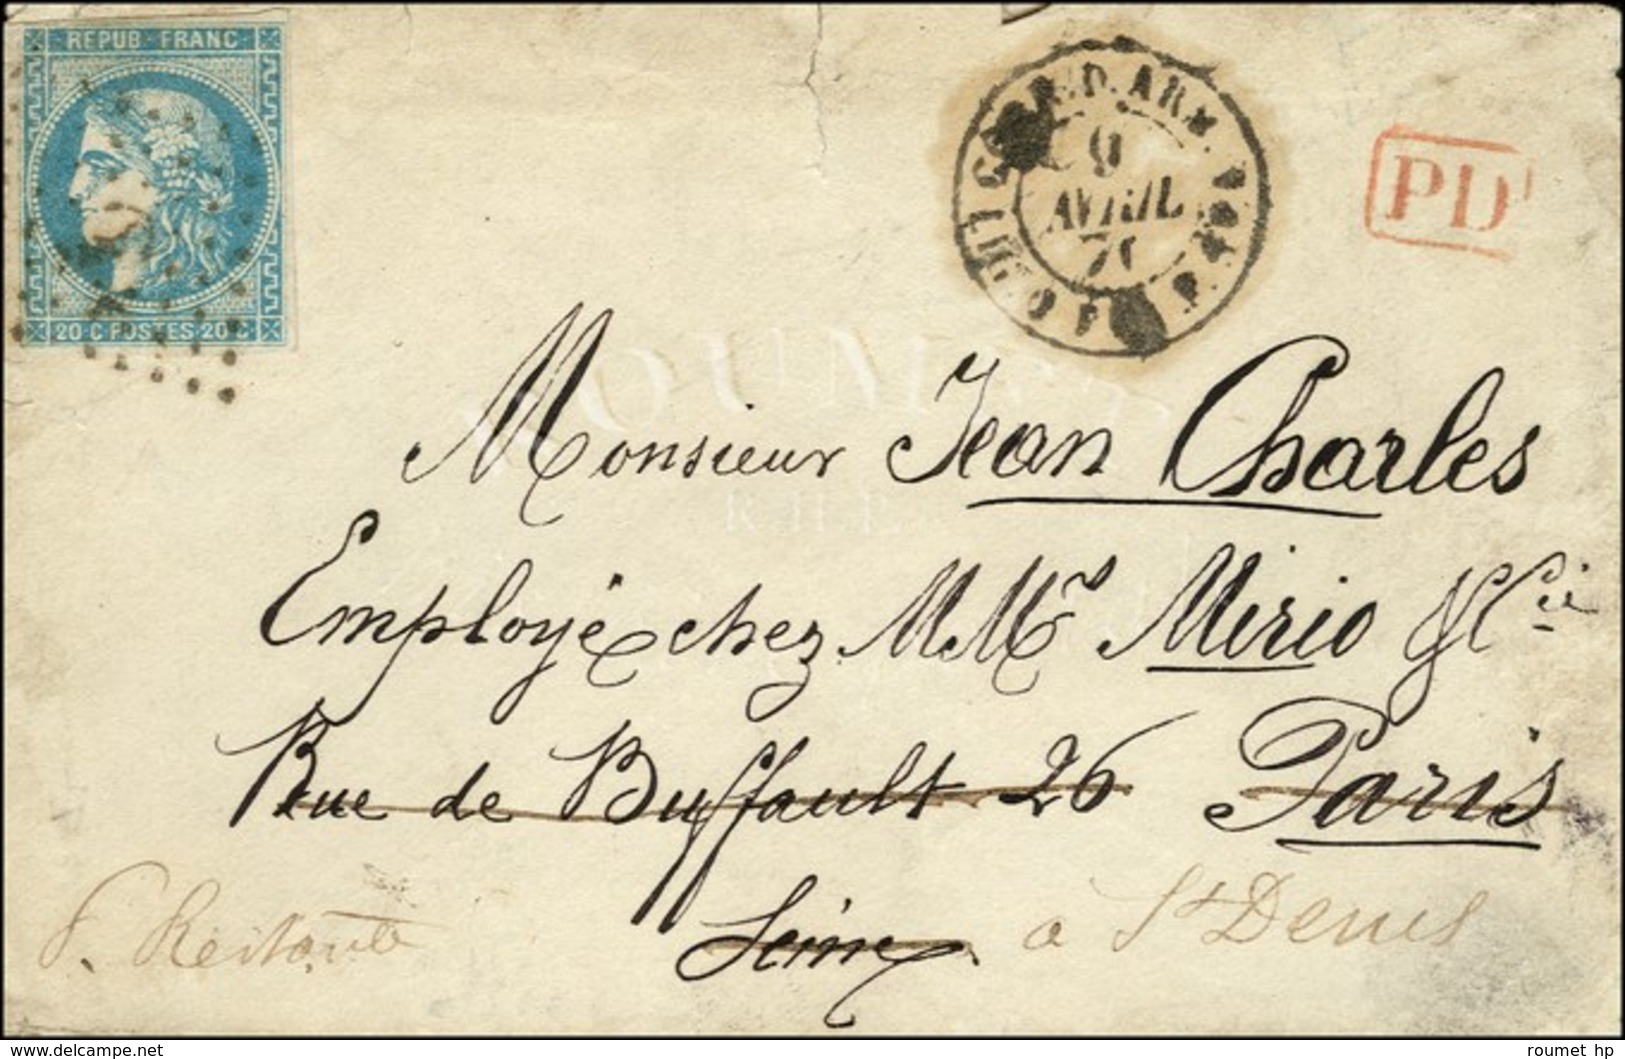 REPUB FRANC
20 C POSTES 20 C
9
AVRIL
71
PD
Monsieur Jean Charles
Employé chez MM.rs Mirio & Cie
Rue de Buffault 26 Paris
Seine à St Denis
P. Restante
delcampe.net
roumet hp